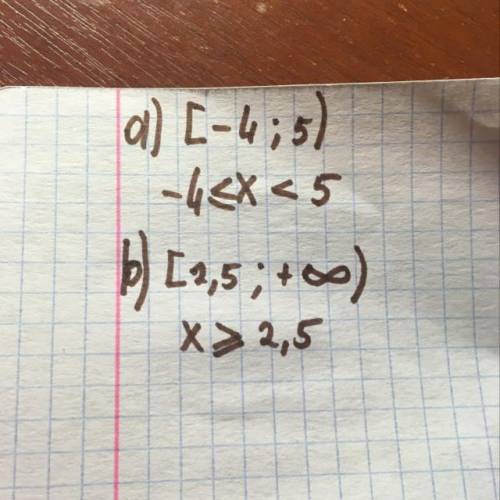 a) [-4 ; 5)
-4 ≤ x < 5
b) [2,5 ; +∞)
x ⩾ 2,5